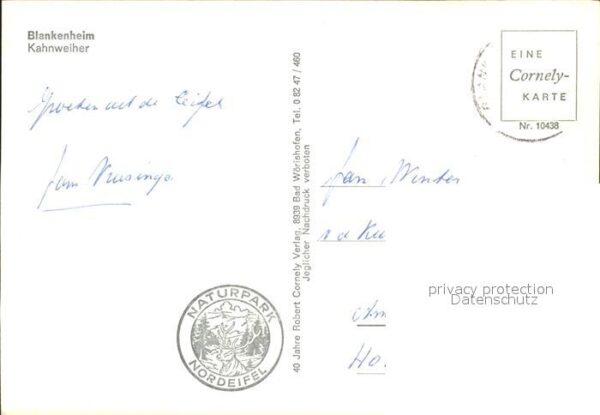 Blankenheim
Kahnweiher
EINE
Cornely-
KARTE
Nr. 10438
Groeten uit de Eifel
Jan
40 Jahre Robert Cornely Verlag, 8939 Bad Wörishofen, Tel. 0 82 47 / 460
Jeglicher Nachdruck verboten
Jan Winter
v d Ku
Am
Ho
privacy protection
Datenschutz
NATURPARK
NORDEIFEL